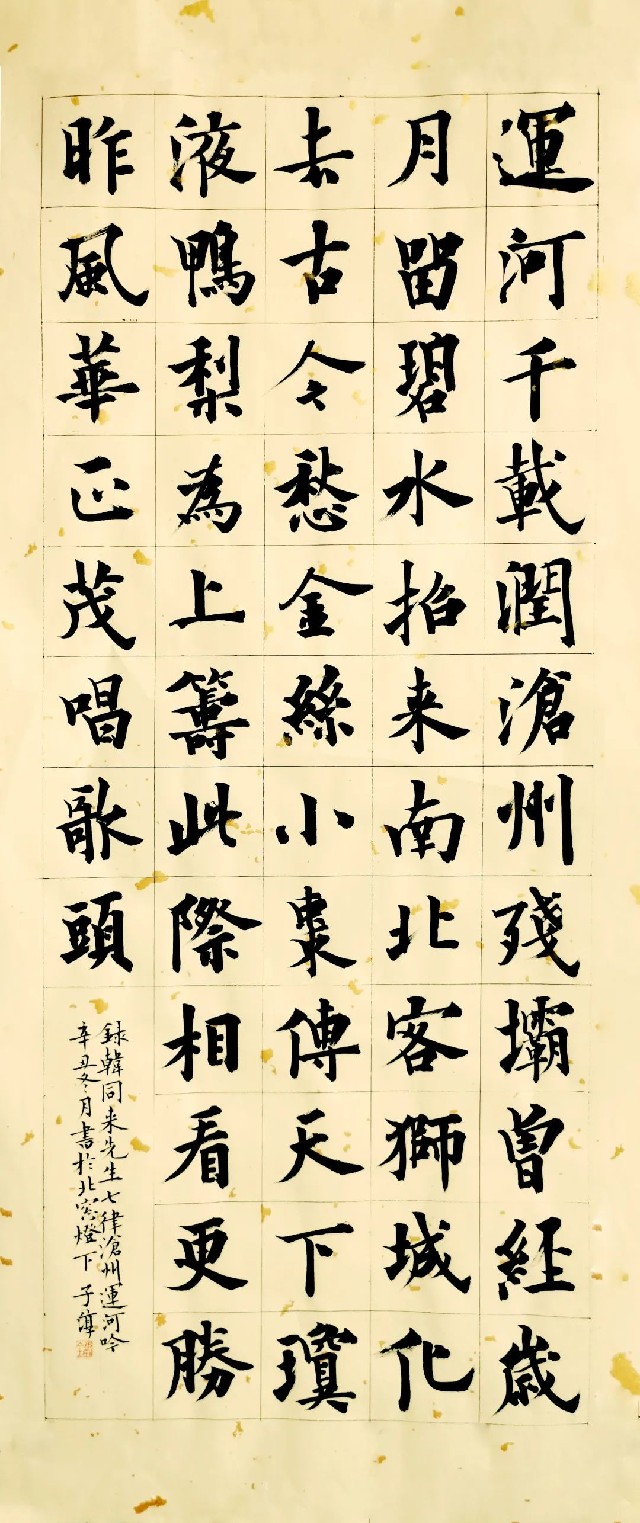 運河千載潤滄州殘壩曾經歲
月留碧水招来南北客獅城化
去古今愁金絲小棗傳天下瓊
液鴨梨為上籌此際相看更勝
昨風華正茂唱歌頭
録韓同来先生七律滄州運河吟
辛丑冬月書於北窓燈下 子淳